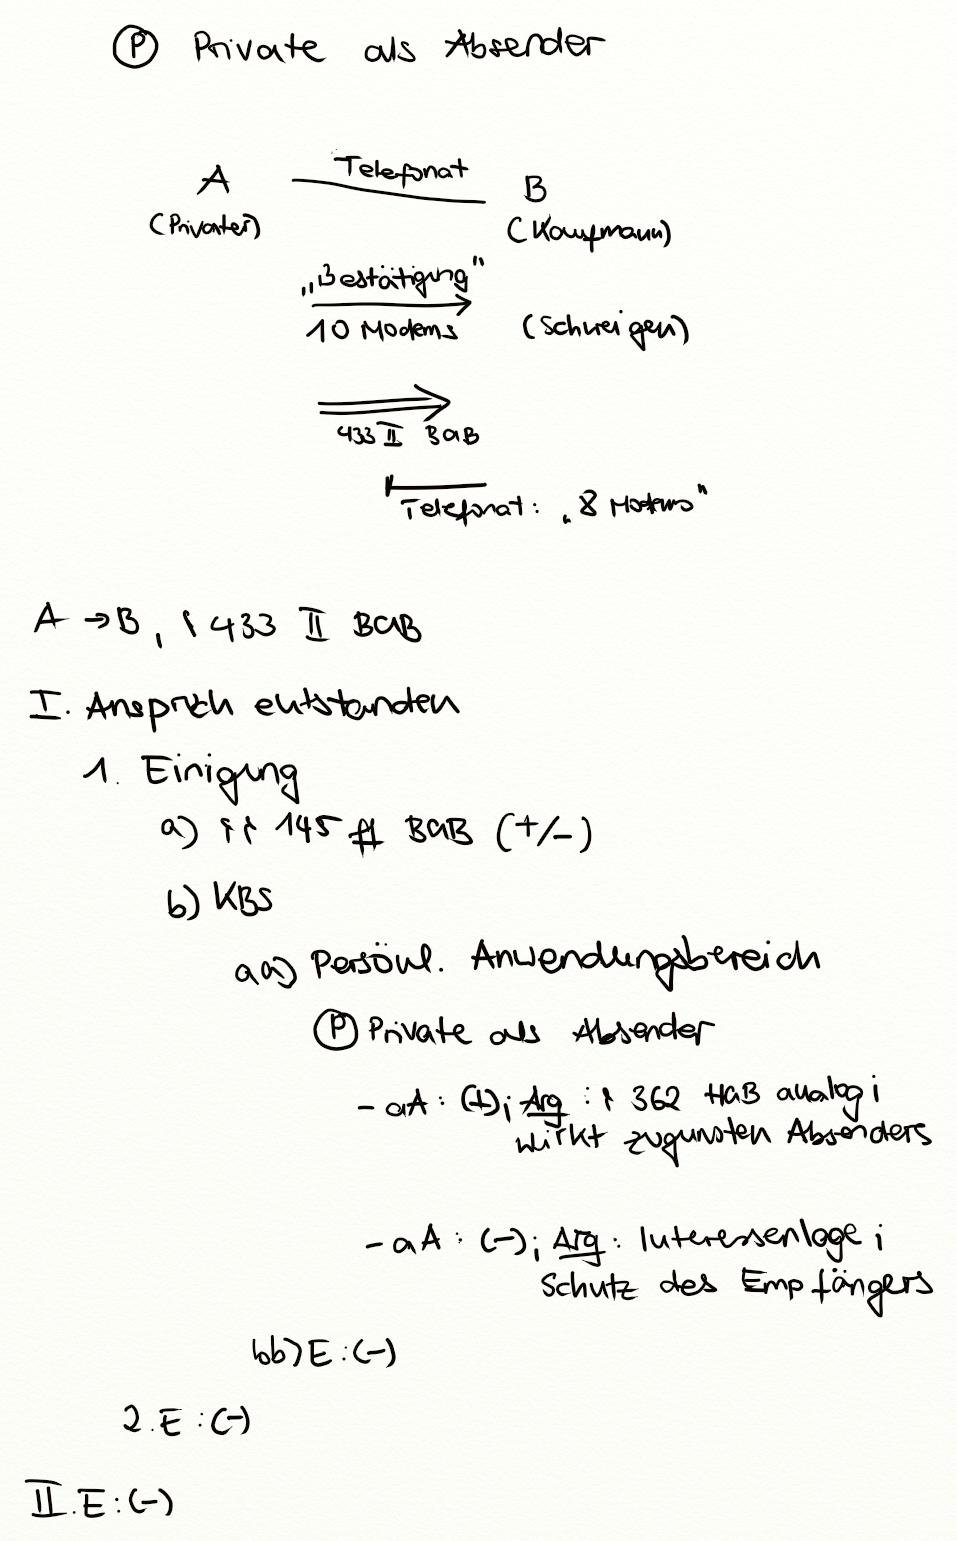 Ⓟ Private als Absender
A Telefonat B
(Privater) (Kaufmann)
„Bestätigung"
10 Modems (Schweigen)
433 II BGB
Telefonat: „8 Modems"
A → B, § 433 II BGB
I. Anspruch entstanden
1. Einigung
a) §§ 145 ff BGB (+/-)
b) KBS
aa) Persönl. Anwendungsbereich
Ⓟ Private als Absender
- aA: (+); Arg: § 362 HGB analog;
wirkt zugunsten Absenders
- aA: (-); Arg: Interessenlage;
Schutz des Empfängers
bb) E: (-)
2. E: (-)
II. E: (-)